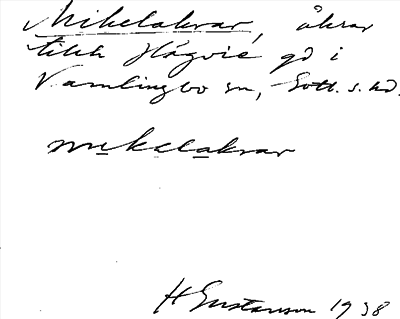 Mikelakrar, åkrar
tillh Hägvie gd i
Vamlingbo sn, Gotl. s. hd.
mikelakrar
H Gustavson 1938